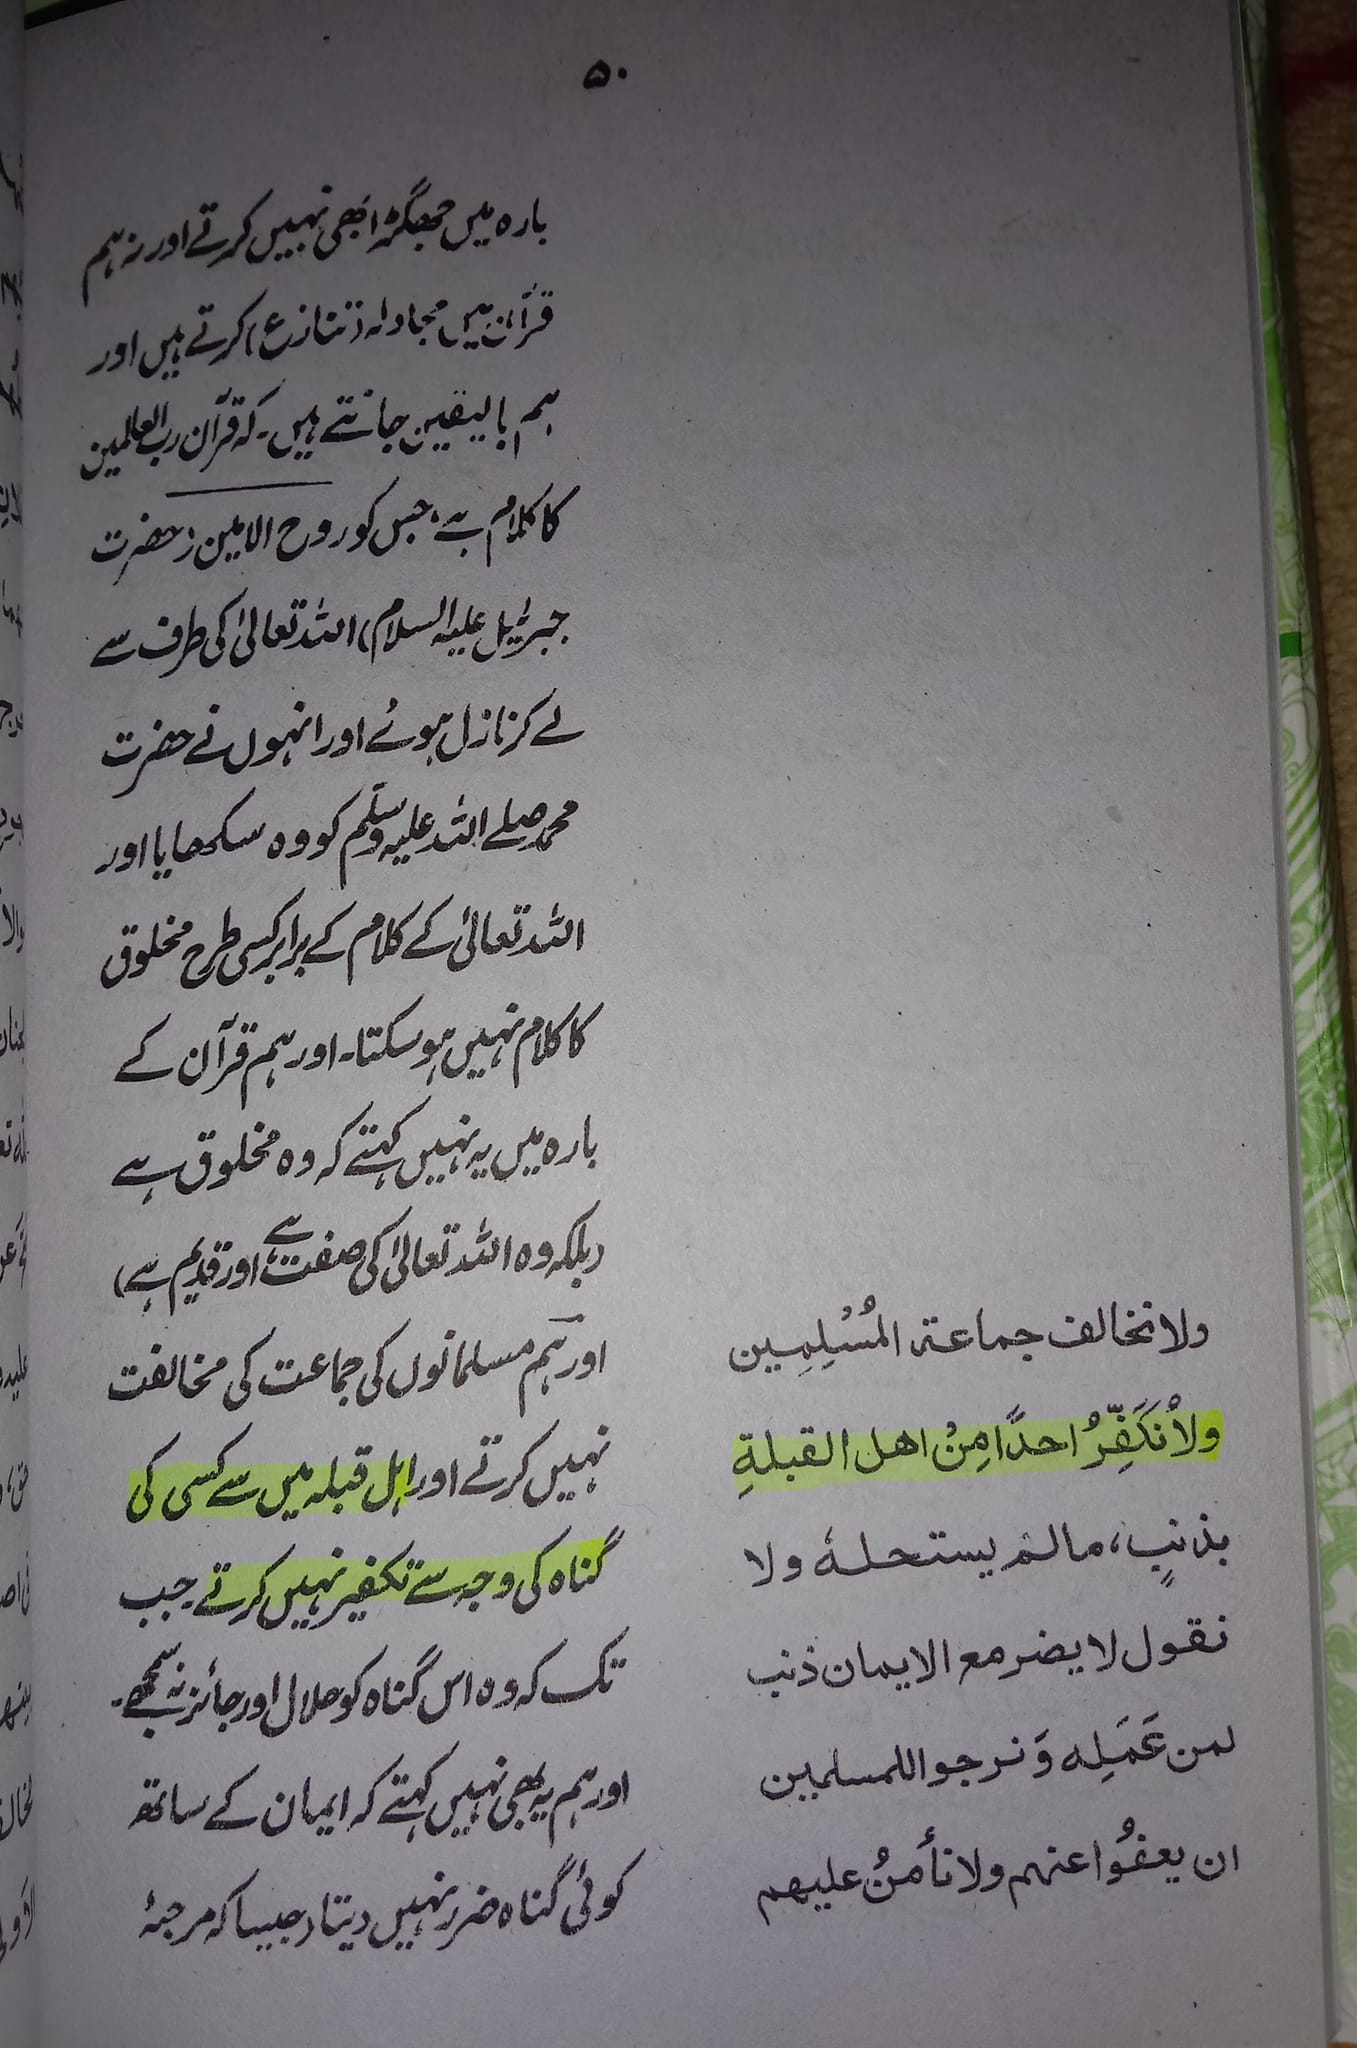 ۵۰
بارہ میں جھگڑا بھی نہیں کرتے اور نہ ہم
قرآن میں مجادلہ (تنازع) کرتے ہیں اور
ہم بالیقین جانتے ہیں۔ کہ قرآن رب العالمین
کا کلام ہے، جس کو روح الامین (حضرت
جبرئیل علیہ السلام) اللہ تعالیٰ کی طرف سے
لے کر نازل ہوئے اور انہوں نے حضرت
محمد صلے اللہ علیہ وسلم کو وہ سکھایا اور
اللہ تعالیٰ کے کلام کے برابر کسی طرح مخلوق
کا کلام نہیں ہو سکتا۔ اور ہم قرآن کے
بارہ میں یہ نہیں کہتے کہ وہ مخلوق ہے
(بلکہ وہ اللہ تعالیٰ کی صفت ہے، اور قدیم ہے)
اور ہم مسلمانوں کی جماعت کی مخالفت
نہیں کرتے اور اہل قبلہ میں سے کسی کی
گناہ کی وجہ سے تکفیر نہیں کرتے۔ جب
تک کہ وہ اس گناہ کو حلال اور جائز نہ سمجھے۔
اور ہم یہ بھی نہیں کہتے کہ ایمان کے ساتھ
کوئی گناہ ضرر نہیں دیتا (جیسا کہ مرجئہ
ولا نخالف جماعة المُسْلِمِين
ولا نُكَفِّرُ احدًا مِنْ اهل القبلةِ
بذنبٍ، مالم يستحلهٗ ولا
نقول لا يضر مع الايمان ذنب
لمن عَمَلِه وَنرجوا للمسلمين
ان يعفُوا عنهم ولا نأمنُ عليهم